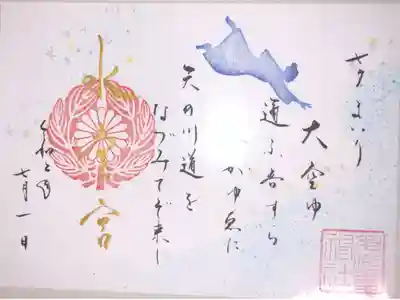 七夕まいり
大空ゆ
通ふ吾すら
かゆゑに
天の川道を
なづみてぞ来し
宮
令和
七月一日